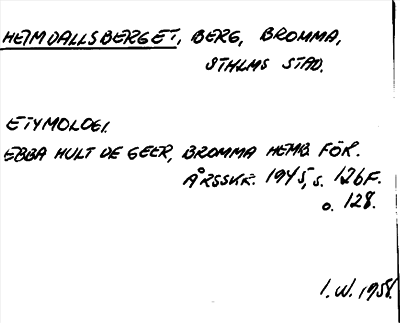 HEIMDALLSBERGET, BERG, BROMMA,
STHLMS STAD.
ETYMOLOGI.
EBBA HULT DE GEER, BROMMA HEMB. FÖR.
ÅRSSKR. 1945, s. 126F.
o. 128.
I.W. 1958.